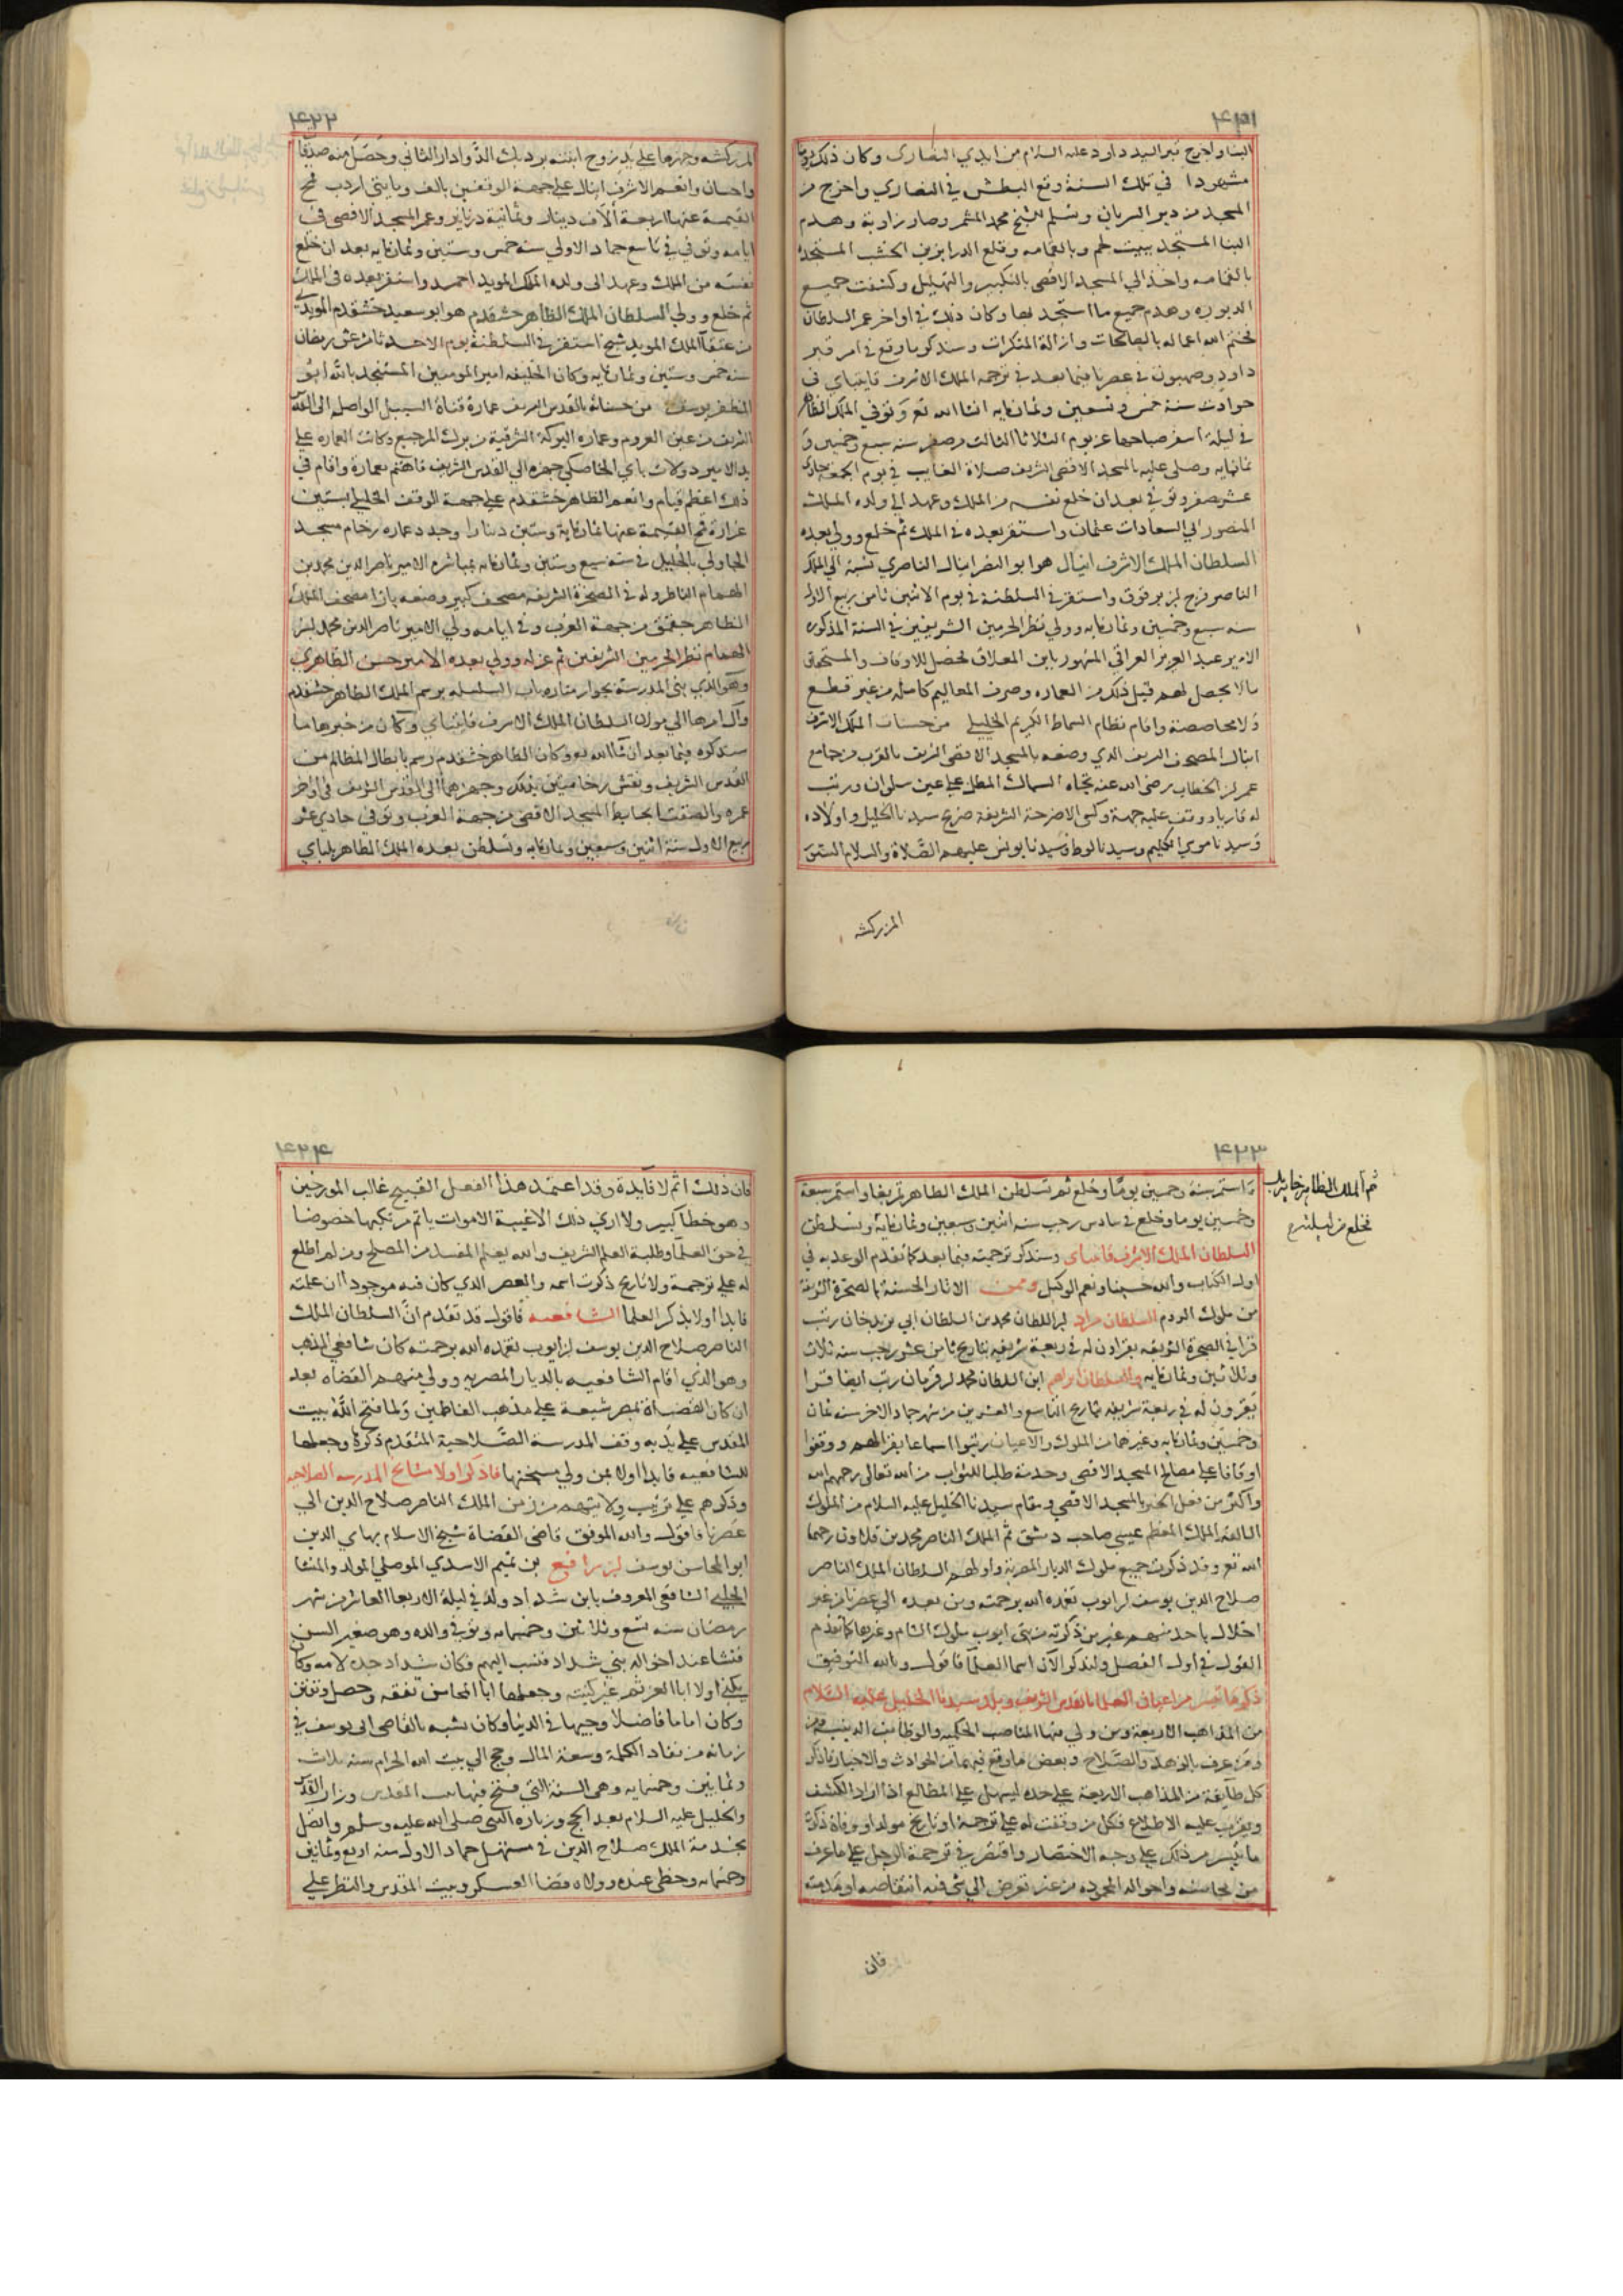 ٤٢١
البنا واخرج قبر السيد داود عليه السلام من ايدي النصارى وكان ذلك يوما
مشهودا في تلك السنة وقع البطش في النصاري واخرج من
المسجد من دير السريان وسلم للشيخ محمد المثمر وصار زاوية وهدم
البنا المستجد ببيت لحم وبالقمامه وقلع الدرابزين الخشب المستجد
بالقمامه واخذ الي المسجد الاقصى بالتكبير والتهليل وكشفت جميع
الديوره وهدم جميع ما استجد بها وكان ذلك في اواخر عمر السلطان
فختم الله اعماله بالصالحات وازالة المنكرات وسنذكر ما وقع في امر قبر
داود وصهيون في عصرنا فيما بعد في ترجمه الملك الاشرف قايتباي في
حوادث سنة خمس وتسعين وثمانمايه انشا الله تع وتوفي الملك الظاهر
في ليلة اسفر صباحها عن يوم الثلاثا الثالث من صفر سنه سبع وخمسين و
ثمانمايه وصلى عليه بالمسجد الاقصى الشريف صلاة الغايب في يوم الجمعة حادى
عشر صفر وتوفي بعد ان خلع نفسه من الملك وعهد الي ولده الملك
المنصور ابي السعادات عثمان واستقر بعده في الملك ثم خلع وولي بعده
السلطان الملك الاشرف اينال هو ابو النصر اينال الناصري نسبة الي الملك
الناصر فرج بن برقوق واستقر في السلطنة في يوم الاثنين ثامن ربيع الاول
سنه سبع وخمسين وثمانمايه وولي نظر الحرمين الشريفين في السنة المذكوره
الامير عبد العزيز العراقي المشهور بابن المعلاق فحصل للاوقاف والمستحقين
مالا يحصل لهم قبل ذلك من العماره وصرف المعاليم كاملة من غير قطع
ولا محاصصة واقام نظام السماط الكريم الخليلي من حسنات الملك الاشرف
اينال المصحف الشريف الذي وضعه بالمسجد الاقصى الشريف بالقرب من جامع
عمر بن الخطاب رضي الله عنه تجاه السماك المطل على عين سلوان ورتب
له قاريا ووقف عليه جهة وكسى الاضرحة الشريفة ضريح سيدنا الخليل واولاده
وسيدنا موسي الكليم وسيدنا لوط وسيدنا يونس عليهم الصلاة والسلام الستور
المزركشه
٤٢٢
المزركشه وجهزها على يد زوج ابنته بردبك الدوادار الثاني وحصل منه صدقا
واحسان وانعم الاشرف اينال على جهة الوقفين بالف ومايتي اردب قمح
القيمة عنها اربعة آلاف دينار وثمانية دنانير وعمر المسجد الاقصى في
ايامه وتوفي في تاسع جماد الاولي سنه خمس وستين وثمانمايه بعد ان خلع
نفسه من الملك وعهد الى ولده الملك المويد احمد واستقر بعده في الملك
ثم خلع وولي السلطان الملك الظاهر خشقدم هو ابو سعيد خشقدم المويدي
من عتقا الملك المويد شيخ استقر في السلطنة يوم الاحد ثامن عشر رمضان
سنه خمس وستين وثمانمايه وكان الخليفه امير المومنين المستنجد بالله ابو
المظفر يوسف من حسناته بالقدس الشريف عمارة قناة السبيل الواصله الى القدس
الشريف من عين العروم وعماره البركة الشرقية من برك المرجيع وكانت العماره على
يد الامير دولات باي الخاصكي جهزه الي القدس الشريف فاهتم بعمارة واقام في
ذلك اعظم قيام وانعم الظاهر خشقدم على جهة الوقف الخليلي بستين
غرارة قمح القيمة عنها ثمانماية وستين دينارا وجدد عماره رخام مسجد
الجاولي بالخليل في سنه سبع وستين وثمانمايه بمباشرة الامير ناصر الدين محمد بن
الهمام الناظر وله في الصخرة الشريفه مصحف كبير وضعه بازا مصحف الملك
الظاهر جقمق من جهة الغرب وفي ايامه ولي الامير ناصر الدين محمد بن
الهمام نظر الحرمين الشريفين ثم عزله وولي بعده الامير حسن الظاهري
وهو الذي بنى المدرسة بجوار مناره باب السلسله برسم الملك الظاهر خشقدم
وآل امرها الي مولانا السلطان الملك الاشرف قايتباي وكان من خبرها ما
سنذكره فيما بعد ان شا الله تع وكان الظاهر خشقدم رسم بابطال المظالم من
القدس الشريف ونقش رخامتين بذلك وجهزهما الى القدس الشريف في اواخر
عمره والصقت بحايط المسجد الاقصى من جهة الغرب وتوفي حادي عشر
ربيع الاول سنة اثنين وسبعين وثمانمايه وتسلطن بعده الملك الظاهر بلباي
٤٢٣
ثم الملك الظاهر خاير بك
فخلع من ليلته
واستمر ستة وخمسين يوما وخلع ثم تسلطن الملك الظاهر تمربغا واستمر سبعة
وخمسين يوما وخلع في سادس رجب سنه اثنين وسبعين وثمانمايه وتسلطن
السلطان الملك الاشرف قايتباى وسنذكر ترجمته فيما بعد كما تقدم الوعد به في
اول الكتاب والله حسبنا ونعم الوكيل وممن الاثار الحسنة بالصخرة الشريفة
من ملوك الروم السلطان مراد بن السلطان محمد بن السلطان ابي يزيد خان رتب
قرا في الصخرة الشريفه يقراون له في ربعة شريفه بتاريخ ثامن عشر رجب سنه ثلاث
وثلاثين وثمانمايه والسلطان ابراهيم ابن السلطان محمد بن قرمان رتب ايضا قرا
يقرون له في ربعة شريفه بتاريخ التاسع والعشرين من شهر جماد الاخر سنه ثمان
وخمسين وثمانمايه وغيرهما من الملوك والاعيان رتبوا اسماعا يقرا لهم ووقفوا
اوقافا على مصالح المسجد الاقصى وخدمته طلبا للثواب من الله تعالى رحمهم الله
واكثر من فعل الخير بالمسجد الاقصي ومقام سيدنا الخليل عليه السلام من الملوك
السالفه الملك المعظم عيسى صاحب دمشق ثم الملك الناصر محمد بن قلاون رحمهما
الله تع وقد ذكرت جميع ملوك الديار المصرية واولهم السلطان الملك الناصر
صلاح الدين يوسف بن ايوب تغمده الله برحمته ومن بعده الي عصرنا من غير
اخلال باحد منهم غير من ذكرته من بني ايوب ملوك الشام وغيرها كما تقدم
القول في اول الفصل ولنذكر الآن اسما العلما فاقول وبالله التوفيق
ذكر ما تيسر من اعيان العلما بالقدس الشريف وبلد سيدنا الخليل عليه السلام
من المذاهب الاربعة ومن ولي منها المناصب الحكميه والوظايف الدينيه
ومن عرف بالزهد والصلاح وبعض ما وقع فيهما من الحوادث والاخبار فاذكر
كل طايفة من المذاهب الاربعة على حده ليسهل علي المطالع اذا اراد الكشف
ويقرب عليه الاطلاع فكل من وقفت له علي ترجمة او تاريخ مولد او وفاة ذكرت
ما تيسر من ذلك على وجه الاختصار واقتصر في ترجمة الرجل على ما عرف
من محاسنه واحواله المحموده من غير تعرض الي شي فيه انتقاصه او مذمته
فان
٤٢٤
فان ذلك اثم لا فآيدة وقد اعتمد هذا الفعل القبيح غالب المورخين
وهو خطا كبير ولا اري ذلك الا غيبة الاموات ياثم مرتكبها خصوصا
في حق العلما وطلبة العلم الشريف والله يعلم المفسد من المصلح ومن لم اطلع
له على ترجمة ولا تاريخ ذكرت اسمه والعصر الذي كان فيه موجودا ان علمته
فابدا اولا بذكر العلما الشافعيه فاقول قد تقدم ان السلطان الملك
الناصر صلاح الدين يوسف بن ايوب تغمده الله برحمته كان شافعي المذهب
وهو الذي اقام الشافعيه بالديار المصريه وولي منهم القضاه بعد
ان كان القضاة بمصر شيعة على مذهب الفاطمين ولما فتح الله بيت
المقدس على يديه وقف المدرسة الصلاحية المتقدم ذكرها وجعلها
للشافعيه فابدا اولا بمن ولي مشيختها فاذكر اولا مشايخ المدرسه الصلاحيه
وذكرهم على ترتيب ولايتهم من زمن الملك الناصر صلاح الدين الي
عصرنا فاقول والله الموفق قاضى القضاة شيخ الاسلام بهاي الدين
ابو المحاسن يوسف بن رافع بن تميم الاسدي الموصلي المولد والمنشا
الحلبي الشافعي المعروف بابن شداد ولد في ليلة الاربعا العاشر من شهر
رمضان سنه تسع وثلاثين وخمسمايه وتوفي والده وهو صغير السن
فنشا عند اخواله بني شداد فنسب اليهم فكان شداد جده لامه وكان
يكنى اولا ابا العز ثم غير كنيته وجعلها ابا المحاسن تفقه وحصل وتفنن
وكان اماما فاضلا وجيها في الدنيا وكان يشبه بالقاضى ابى يوسف في
زمانه من نفاد الكلمة وسعة المال وحج الي بيت الله الحرام سنه ثلاث
وثمانين وخمسمايه وهى السنة التي فتح فيها بيت المقدس وزار القدس
والخليل عليه السلام بعد الحج وزياره النبي صلى الله عليه وسلم واتصل
بخدمة الملك صلاح الدين في مستهل جماد الاول سنه اربع وثمانين
وخمسمايه وحظى عنده وولاه قضا العسكر وبيت المقدس والنظر على